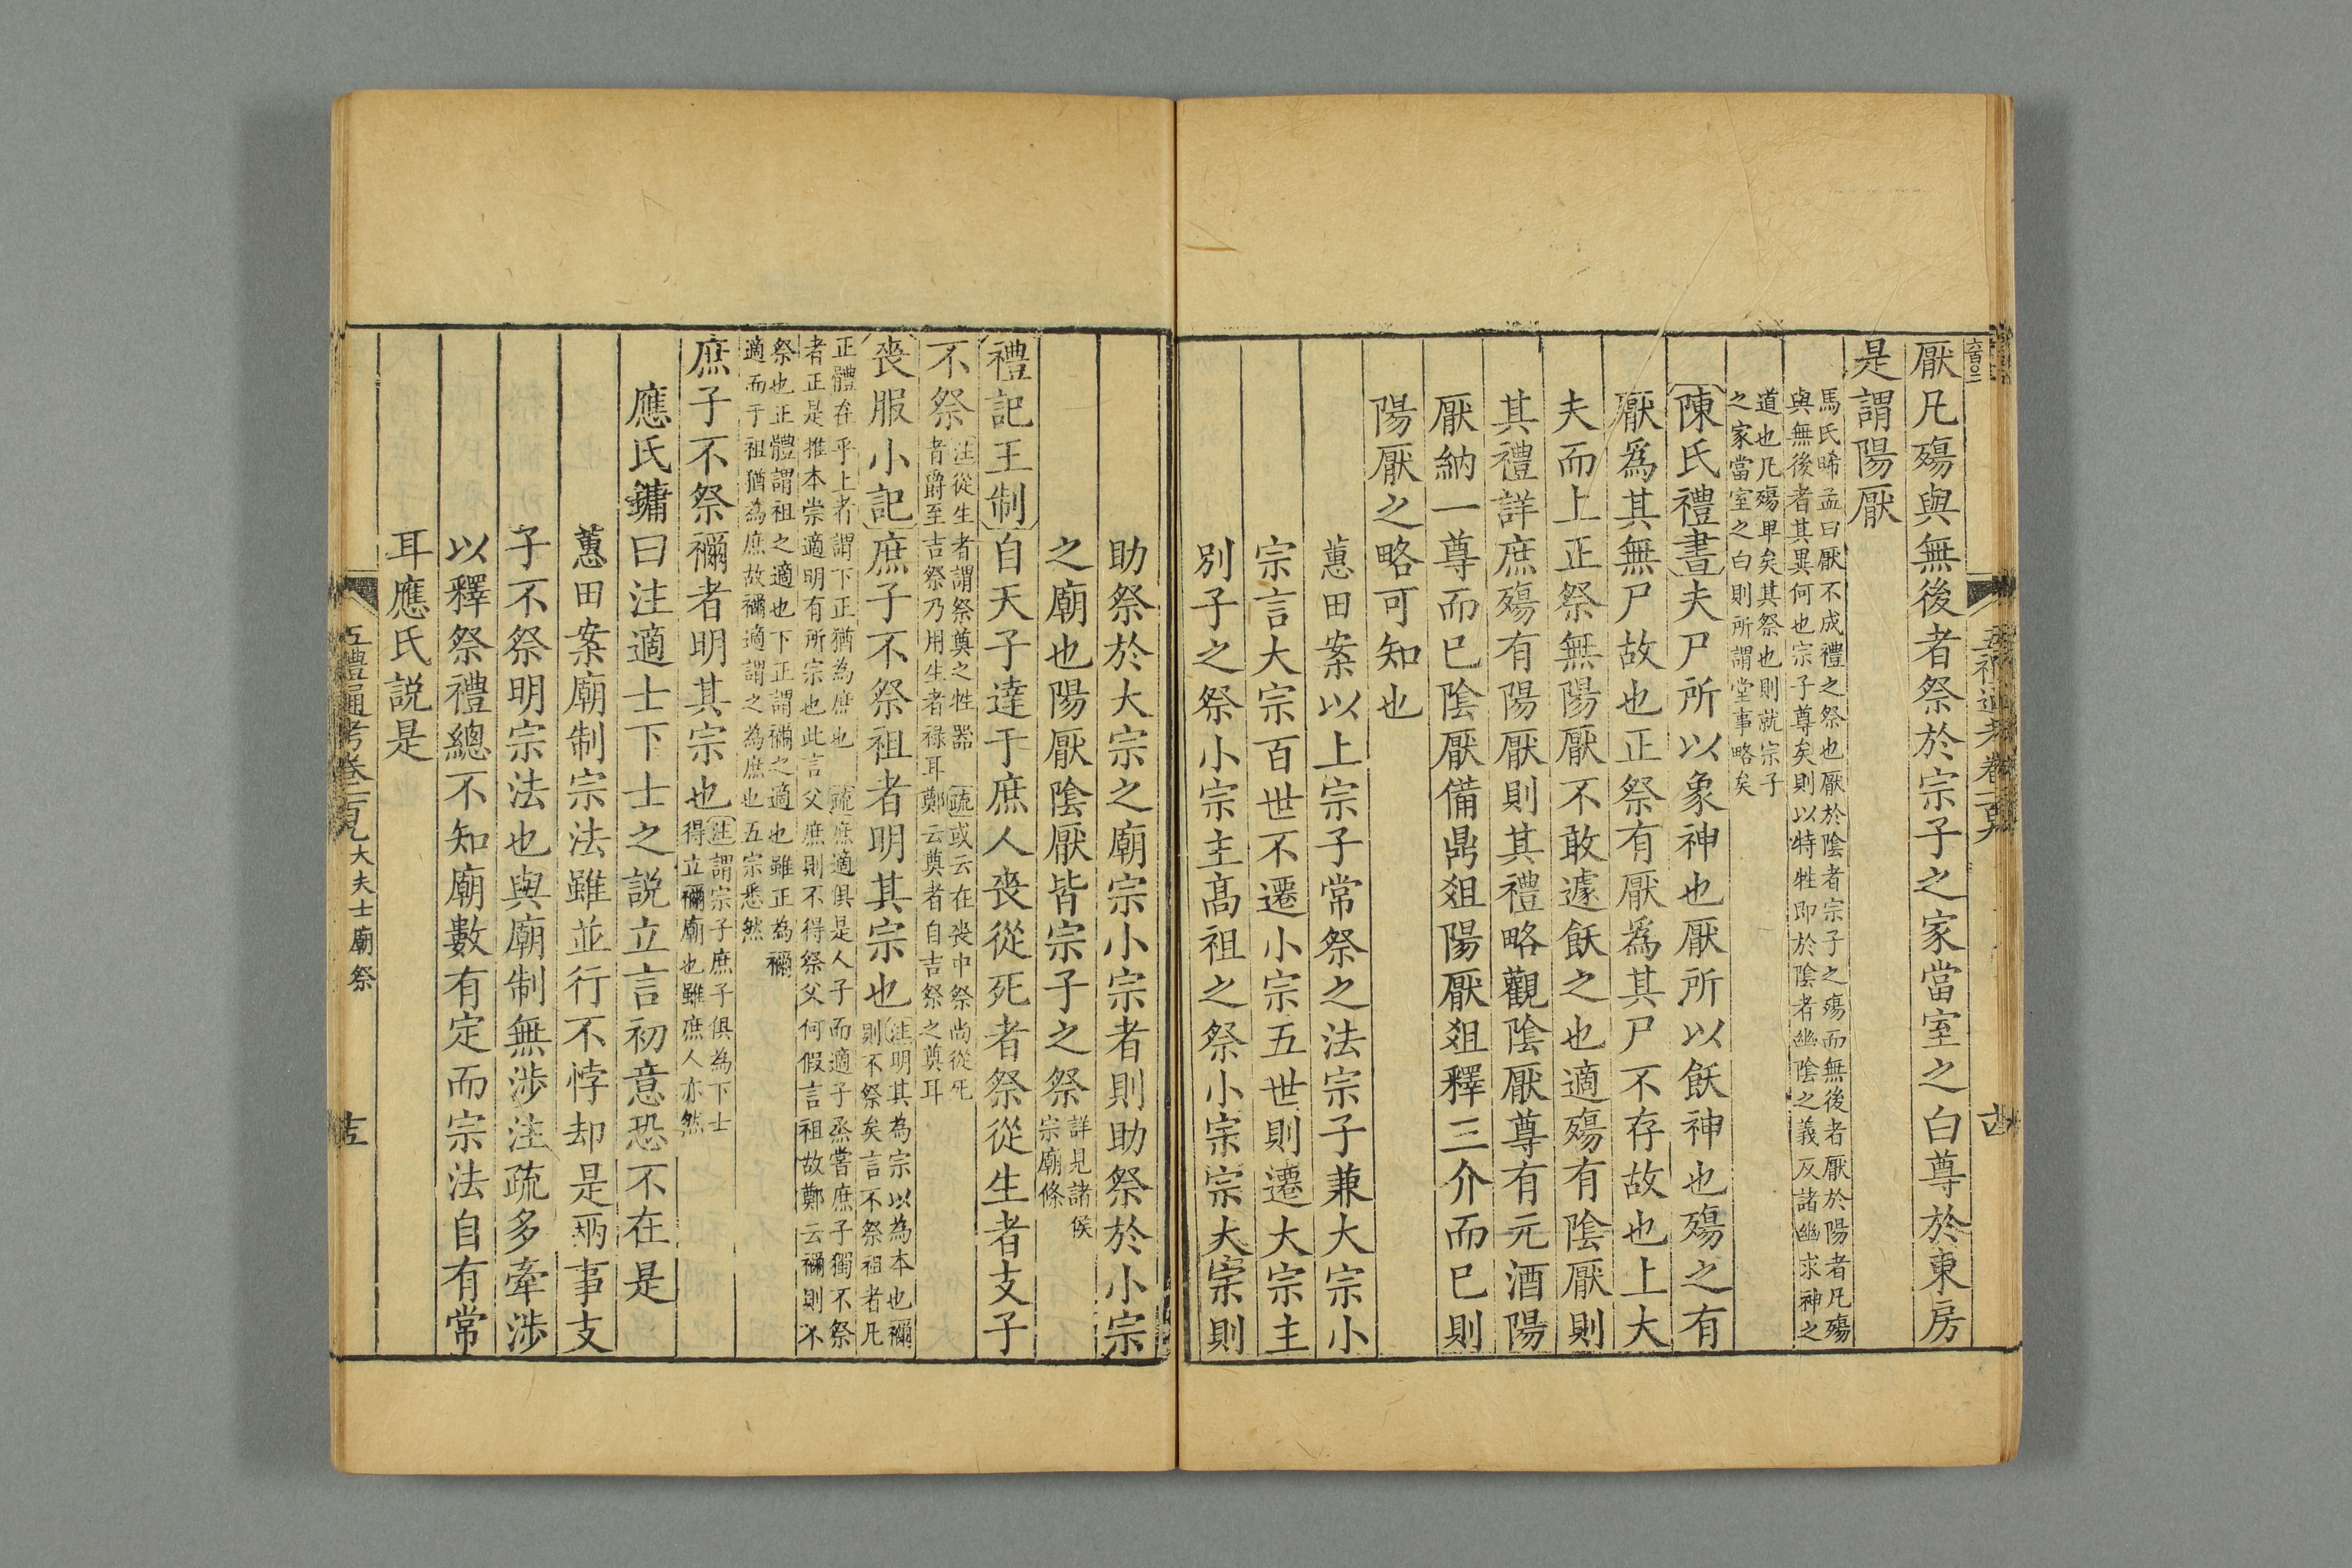 厭凡殤與無後者祭於宗子之家當室之白尊於東房
是謂陽厭
馬氏晞孟曰厭不成禮之祭也厭於陰者宗子之殤而無後者厭於陽者凡殤
與無後者其異何也宗子尊矣則以特牲即於陰者幽陰之義反諸幽求神之
道也凡殤卑矣其祭也則就宗子
之家當室之白則所謂堂事略矣
陳氏禮書夫尸所以象神也厭所以飫神也殤之有
厭爲其無尸故也正祭有厭爲其尸不存故也上大
夫而上正祭無陽厭不敢遽飫之也適殤有陰厭則
其禮詳庶殤有陽厭則其禮略觀陰厭尊有元酒陽
厭納一尊而已陰厭備鼎俎陽厭俎釋三介而已則
陽厭之略可知也
蕙田案以上宗子常祭之法宗子兼大宗小
宗言大宗百世不遷小宗五世則遷大宗主
別子之祭小宗主高祖之祭小宗宗大宗則
助祭於大宗之廟宗小宗者則助祭於小宗
之廟也陽厭陰厭皆宗子之祭詳見諸侯
宗廟條
禮記王制自天子達于庶人喪從死者祭從生者支子
不祭注從生者謂祭奠之牲器 疏或云在喪中祭尚從死
者爵至吉祭乃用生者祿耳鄭云奠者自吉祭之奠耳
喪服小記庶子不祭祖者明其宗也注明其為宗以為本也禰
則不祭矣言不祭祖者凡
正體在乎上者謂下正猶為庶也 疏庶適俱是人子而適子烝嘗庶子獨不祭
者正是推本崇適明有所宗也此言父庶則不得祭父何假言祖故鄭云禰則不
祭也正體謂祖之適也下正謂禰之適也雖正為禰
適而于祖猶為庶故禰適謂之為庶也五宗悉然
庶子不祭禰者明其宗也注謂宗子庶子俱為下士
得立禰廟也雖庶人亦然
應氏鏞曰注適士下士之説立言初意恐不在是
蕙田案廟制宗法雖並行不悖却是兩事支
子不祭明宗法也與廟制無涉注疏多牽涉
以釋祭禮總不知廟數有定而宗法自有常
耳應氏説是
五禮通考卷一百九 大夫士廟祭